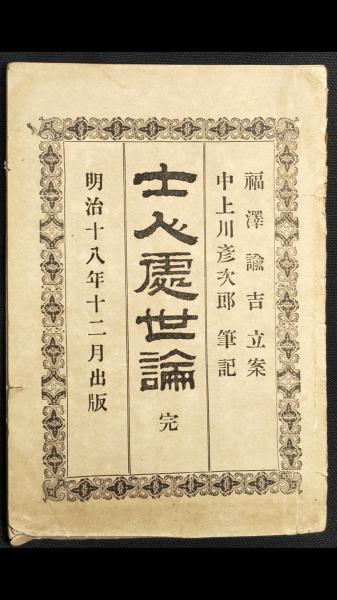 福澤諭吉立案
中上川彥次郎筆記
士人處世論 完
明治十八年十二月出版